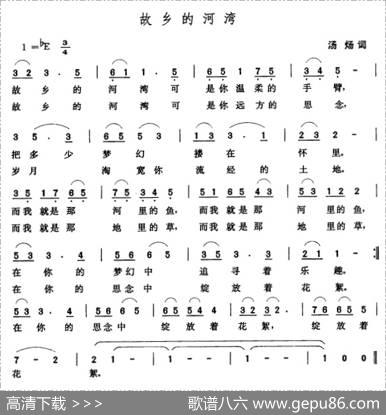 故乡的河湾
1=♭E 3/4 汤炀词
3 2 3 · 5 | 6 1 1 · 5 | 6 5 1 7 5 | 3 4 5 - |
故乡的 河湾可 是你温柔的 手臂，
故乡的 河湾可 是你远方的 思念，
3 5 · 3 | 6 5 5 3 | 1 3 · 1 | 2 3 2 - |
把多少 梦幻 搂在 怀里。
岁月 淘宽你 流经的 土地。
3 5 1 7 6 5 | 7 5 3 4 5 | 5 1 6 5 4 3 | 5 3 1 2 2 |
而我就是那 河里的鱼， 而我就是那 河里的鱼，
而我就是那 地里的草， 而我就是那 地里的草，
5 3 3 · 1 | 5 6 6 5 | 5 3 3 · 1 | 2 1 1 - :|
在你的 梦幻中 追寻着 乐趣。
在你的 思念中 绽放着 花絮。
5 3 3 · 1 | 5 6 6 5 | 1 2 6 5 | 6 5 5 3 | 1 2 6 5 |
在你的 思念中 绽放着 花絮， 绽放着
7 - 2 | 2 1 - | 1 - - | 1 - - | 1 0 0 ‖
花 絮。
高清下载 >>> 歌谱八六 www.gepu86.com